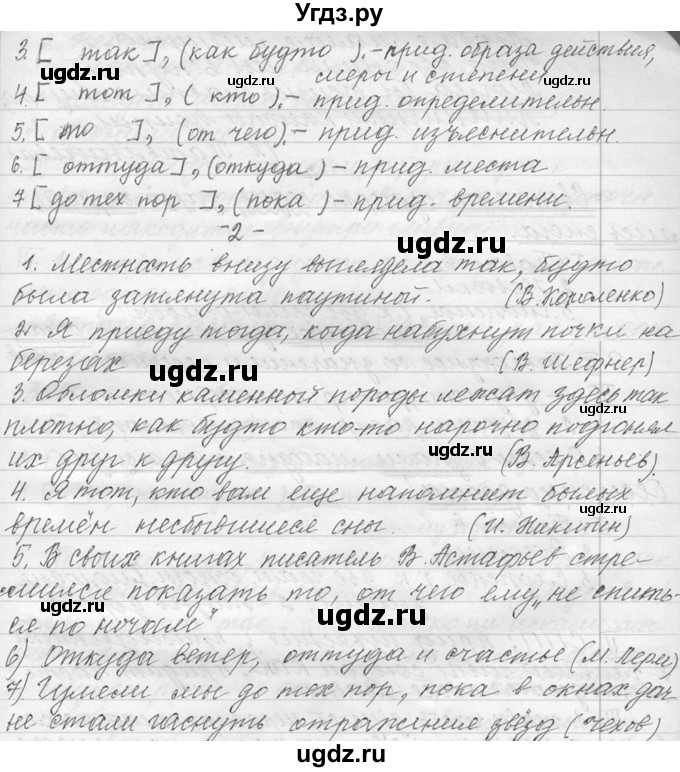 Угдз.ру
3. [ так ], (как будто ). – прид. образа действия,
меры и степени
4. [ тот ], ( кто ). – прид. определительн.
5. [ то ], (от чего). – прид. изъяснительн.
6. [ оттуда ], (откуда ) – прид. места
7 [ до тех пор ], (пока ) – прид. времени.
-2-
1. Местность внизу выглядела так, будто
была затянута паутиной. (В. Короленко)
2. Я приеду тогда, когда набухнут почки на
березах (В. Шефнер)
3. Обломки каменный породы лежат здесь так
плотно, как будто кто-то нарочно подгонял
их друг к другу. (В. Арсеньев)
4. Я тот, кто вам еще напомнит былых
времён несбывшиеся сны. (И. Никитин)
5. В своих книгах писатель В. Астафьев стре-
мился показать то, от чего ему „не спить-
ся по ночам"
6) Откуда ветер, оттуда и счастье (М. Лерм)
7) Гуляли мы до тех пор, пока в окнах дач
не стали гаснуть отражения звёзд (Чехов)
ugdz.ru
ugdz.ru
ugdz.ru
ugdz.ru
ugdz.ru
ugdz.ru
ugdz.ru
ugdz.ru
ugdz.ru
ugdz.ru
ugdz.ru
ugdz.ru
ugdz.ru